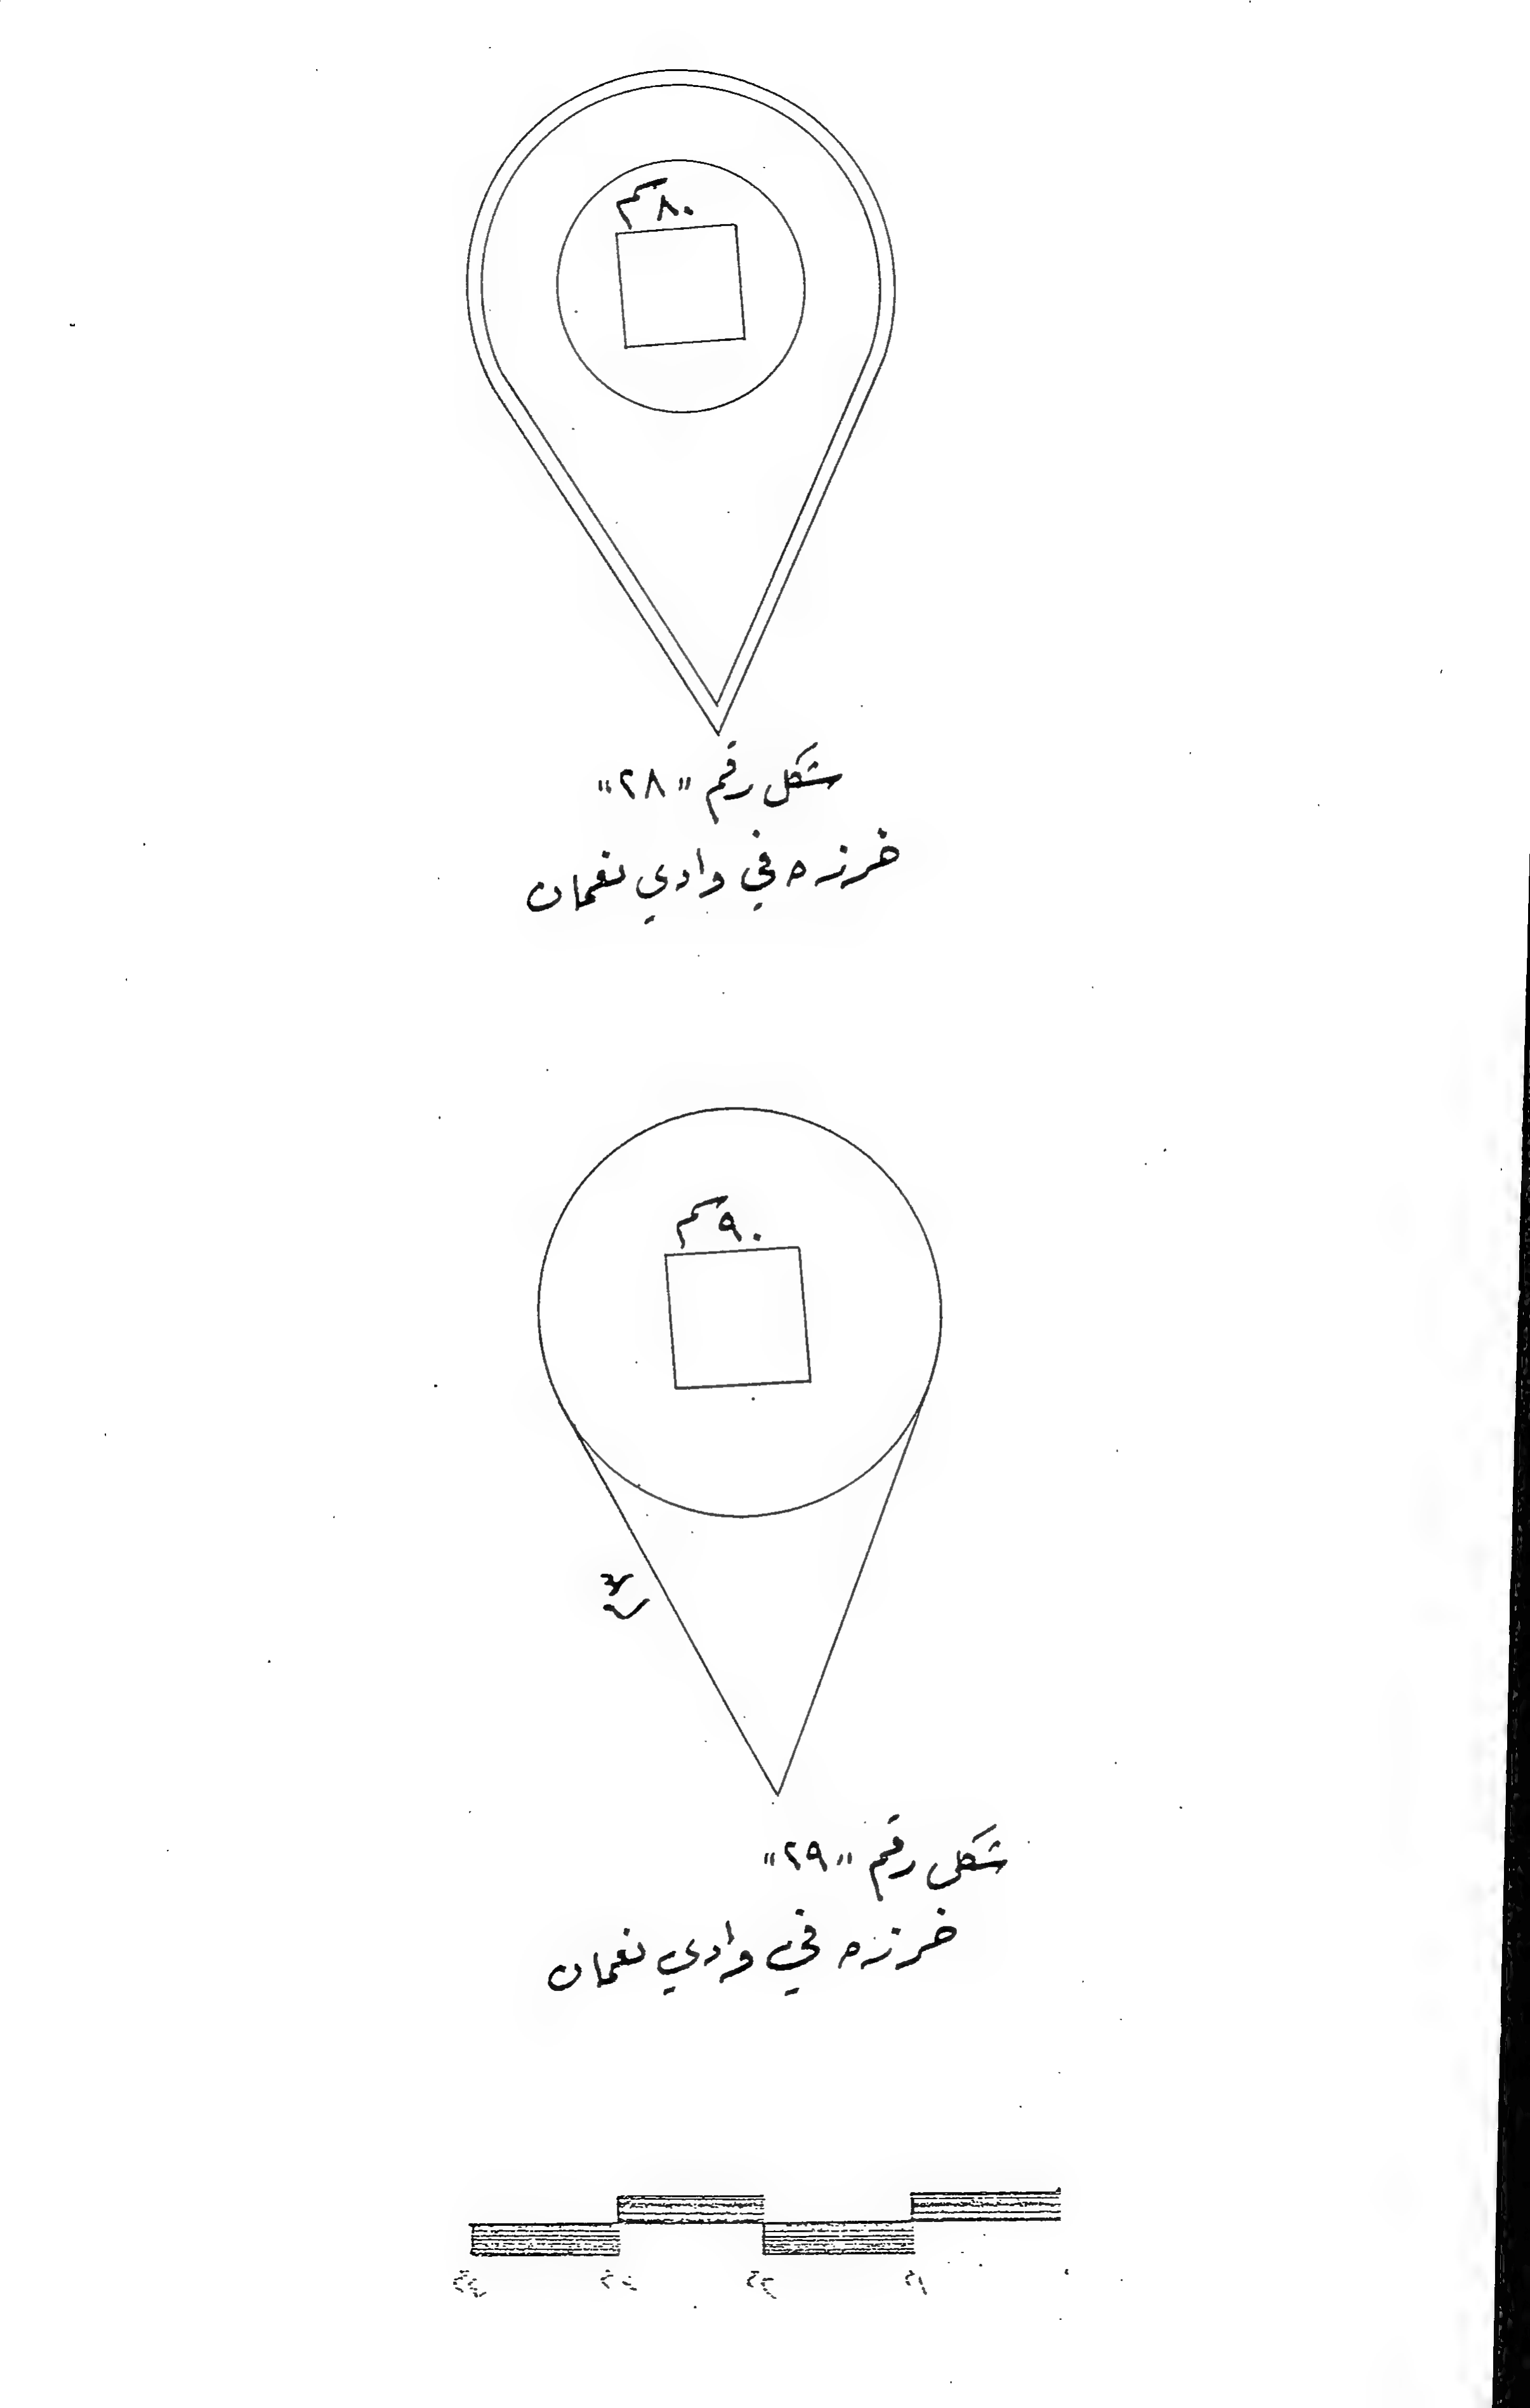 ٨٠سم
شكل رقم "٢٨"
خرزه في وادي نعمان
٩٠سم
شكل رقم "٢٩"
خرزه في وادي نعمان